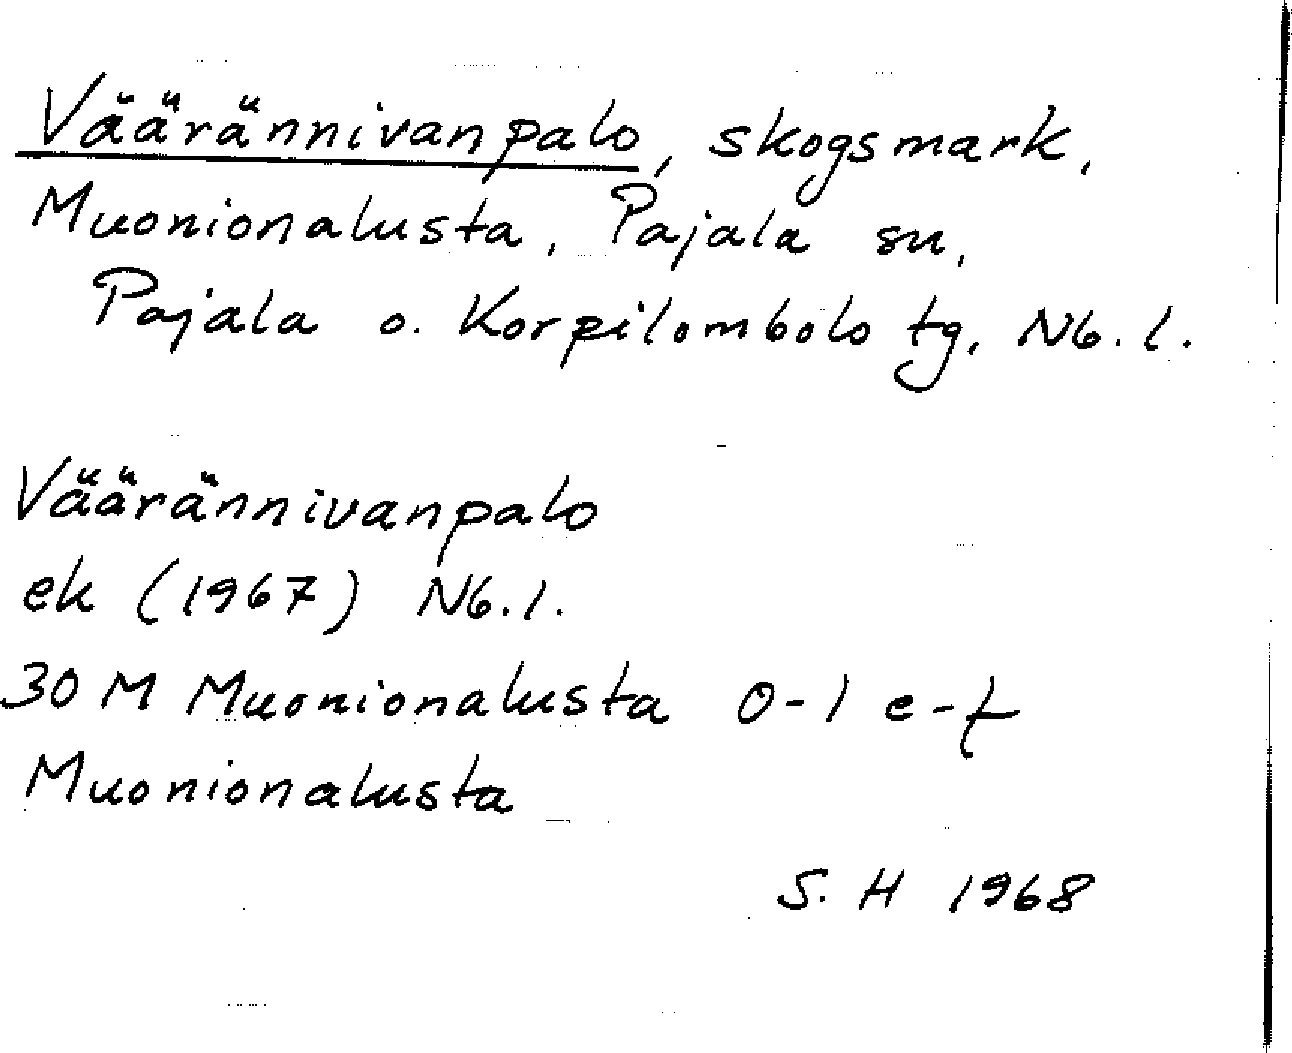 Väärännivanpalo, skogsmark,
Muonionalusta, Pajala sn,
Pajala o. Korpilombolo tg, Nb. l.
Väärännivanpalo
ek (1967) Nb. l.
30 M Muonionalusta 0-1 e-f
Muonionalusta
S. H 1968